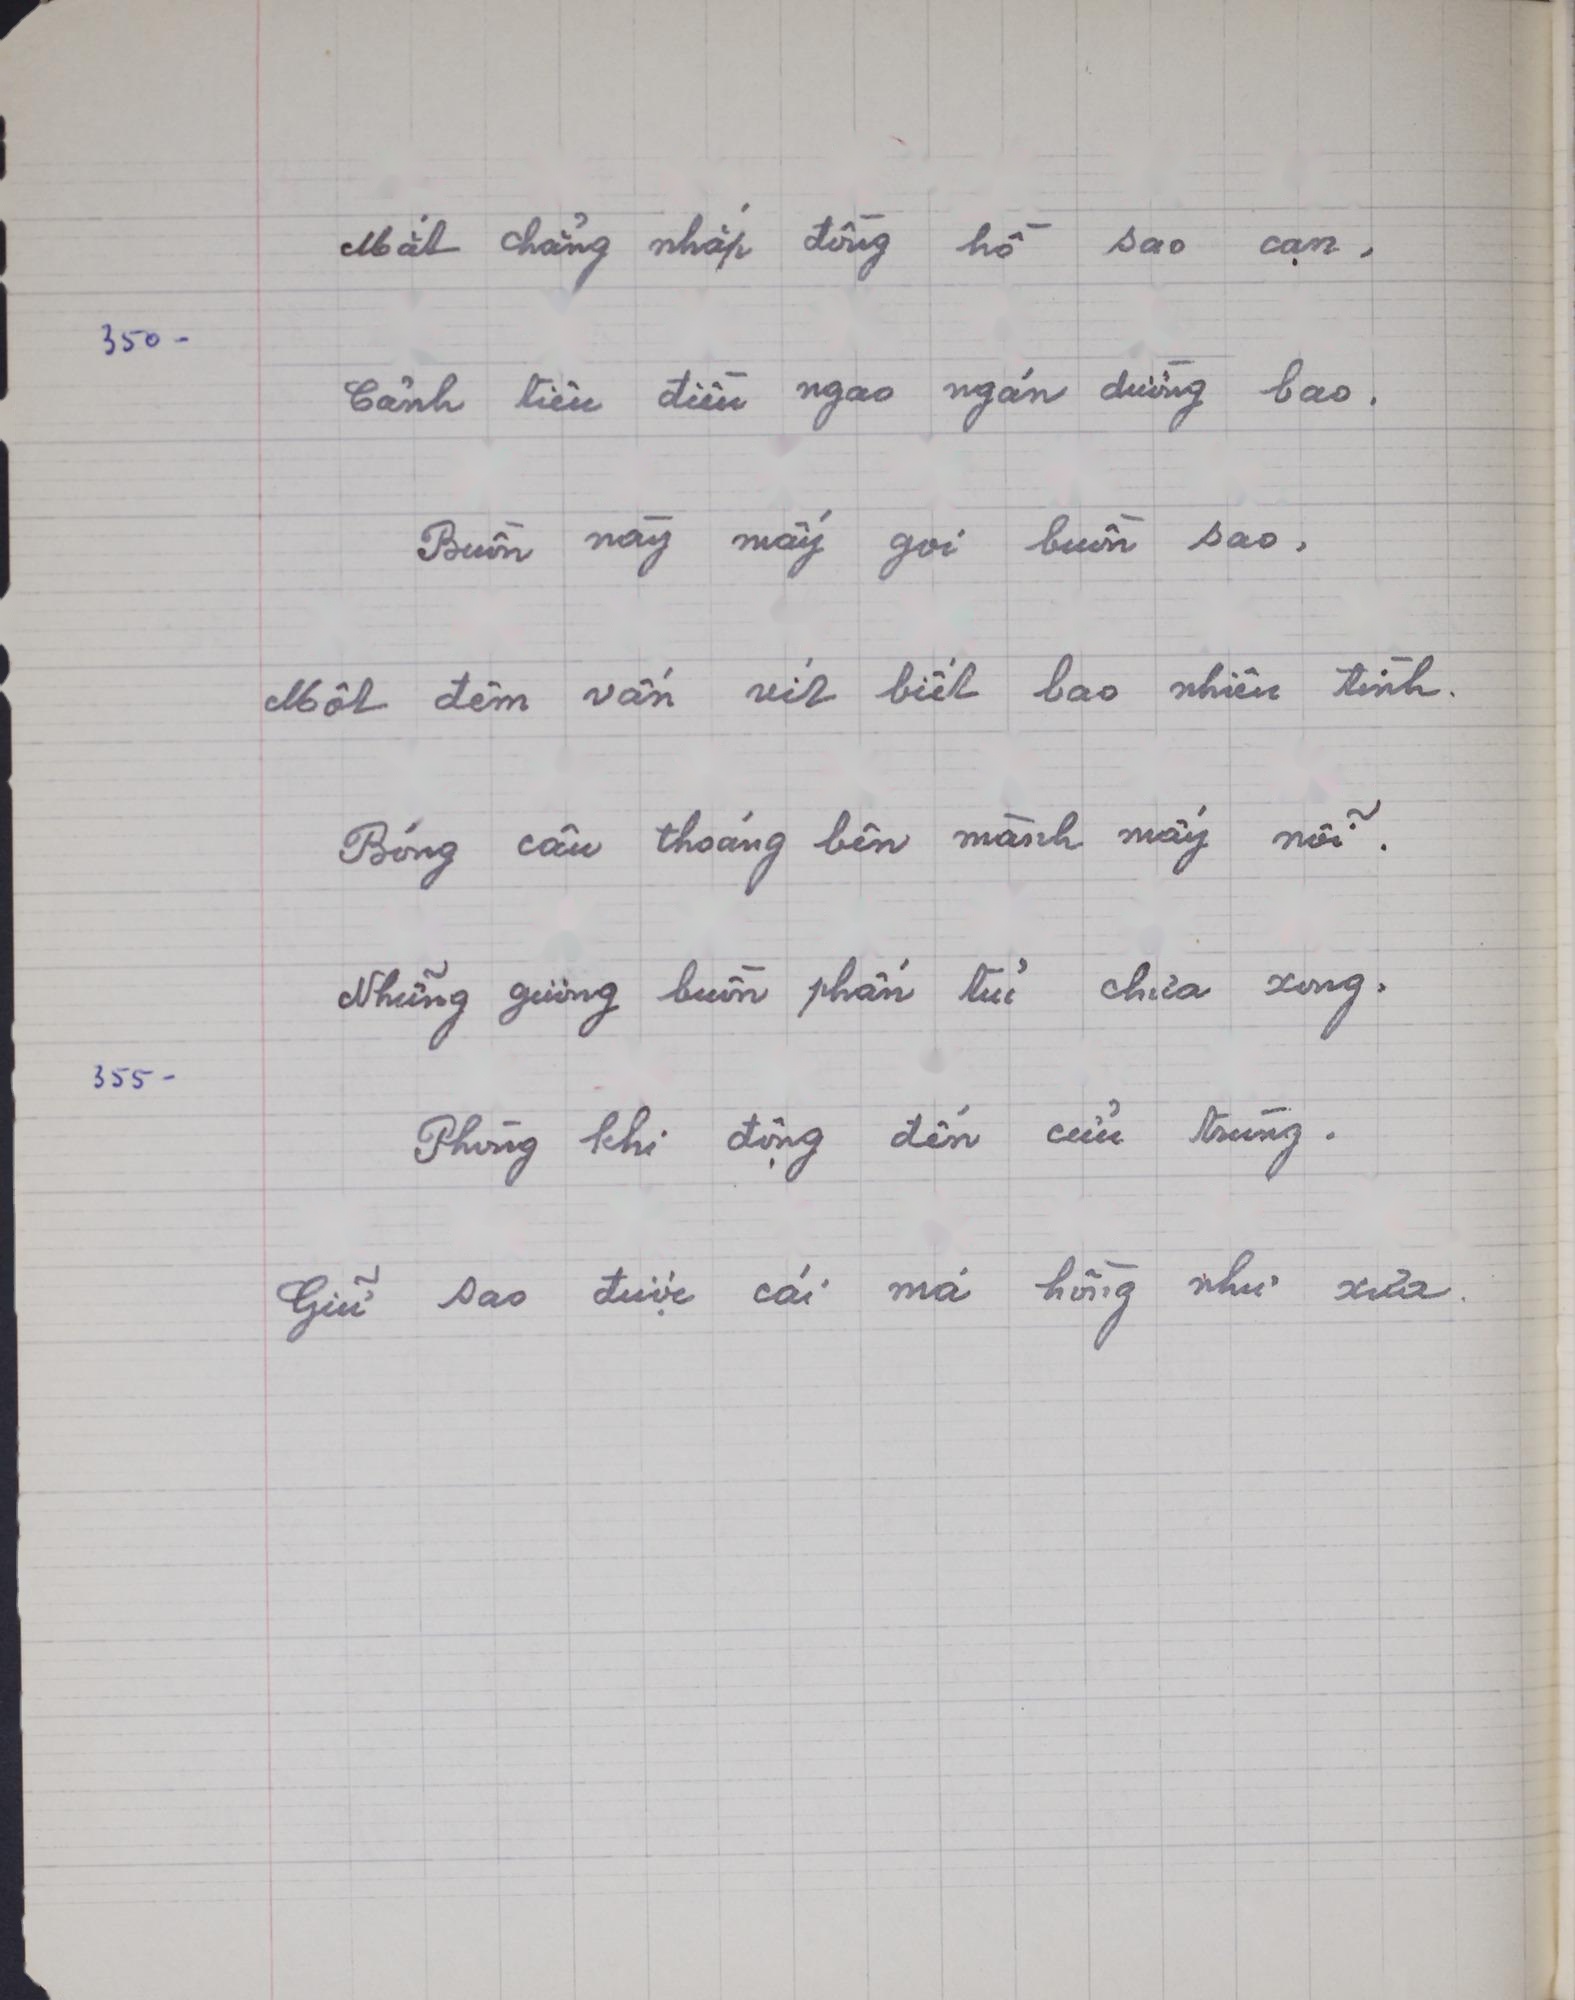 Mắt chẳng nhắp đồng hồ sao cạn,
350-
Cảnh tiêu điều ngao ngán dường bao.
Buồn này mấy gọi buồn sao,
Một đêm vấn vít biết bao nhiêu tình.
Bóng câu thoáng bên mành mấy nỗi.
Những gương buồn phấn tủi chưa xong.
355-
Phòng khi động đến cửu trùng.
Giữ sao được cái má hồng như xưa.